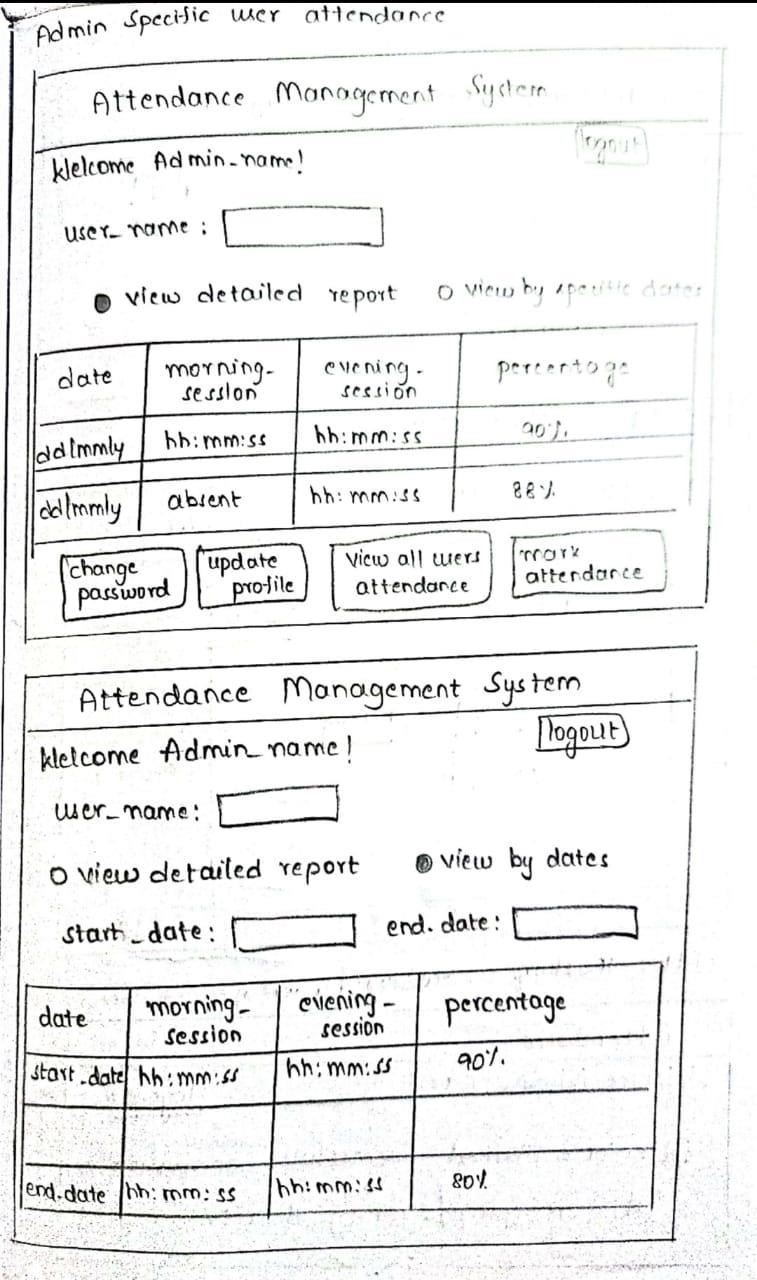 Admin Specific user attendance
Attendance Management System
Welcome Admin-name!
logout
user_name :
view detailed report
view by specific dates
date
morning-session
evening-session
percentage
dd/mm/y
hh:mm:ss
hh:mm:ss
90%
dd/mm/y
absent
hh:mm:ss
88%
change password
update profile
View all users attendance
mark attendance
Attendance Management System
Welcome Admin_name!
logout
user_name:
view detailed report
view by dates
start_date:
end.date:
date
morning-session
evening-session
percentage
start_date
hh:mm:ss
hh:mm:ss
90%
end.date
hh:mm:ss
hh:mm:ss
80%